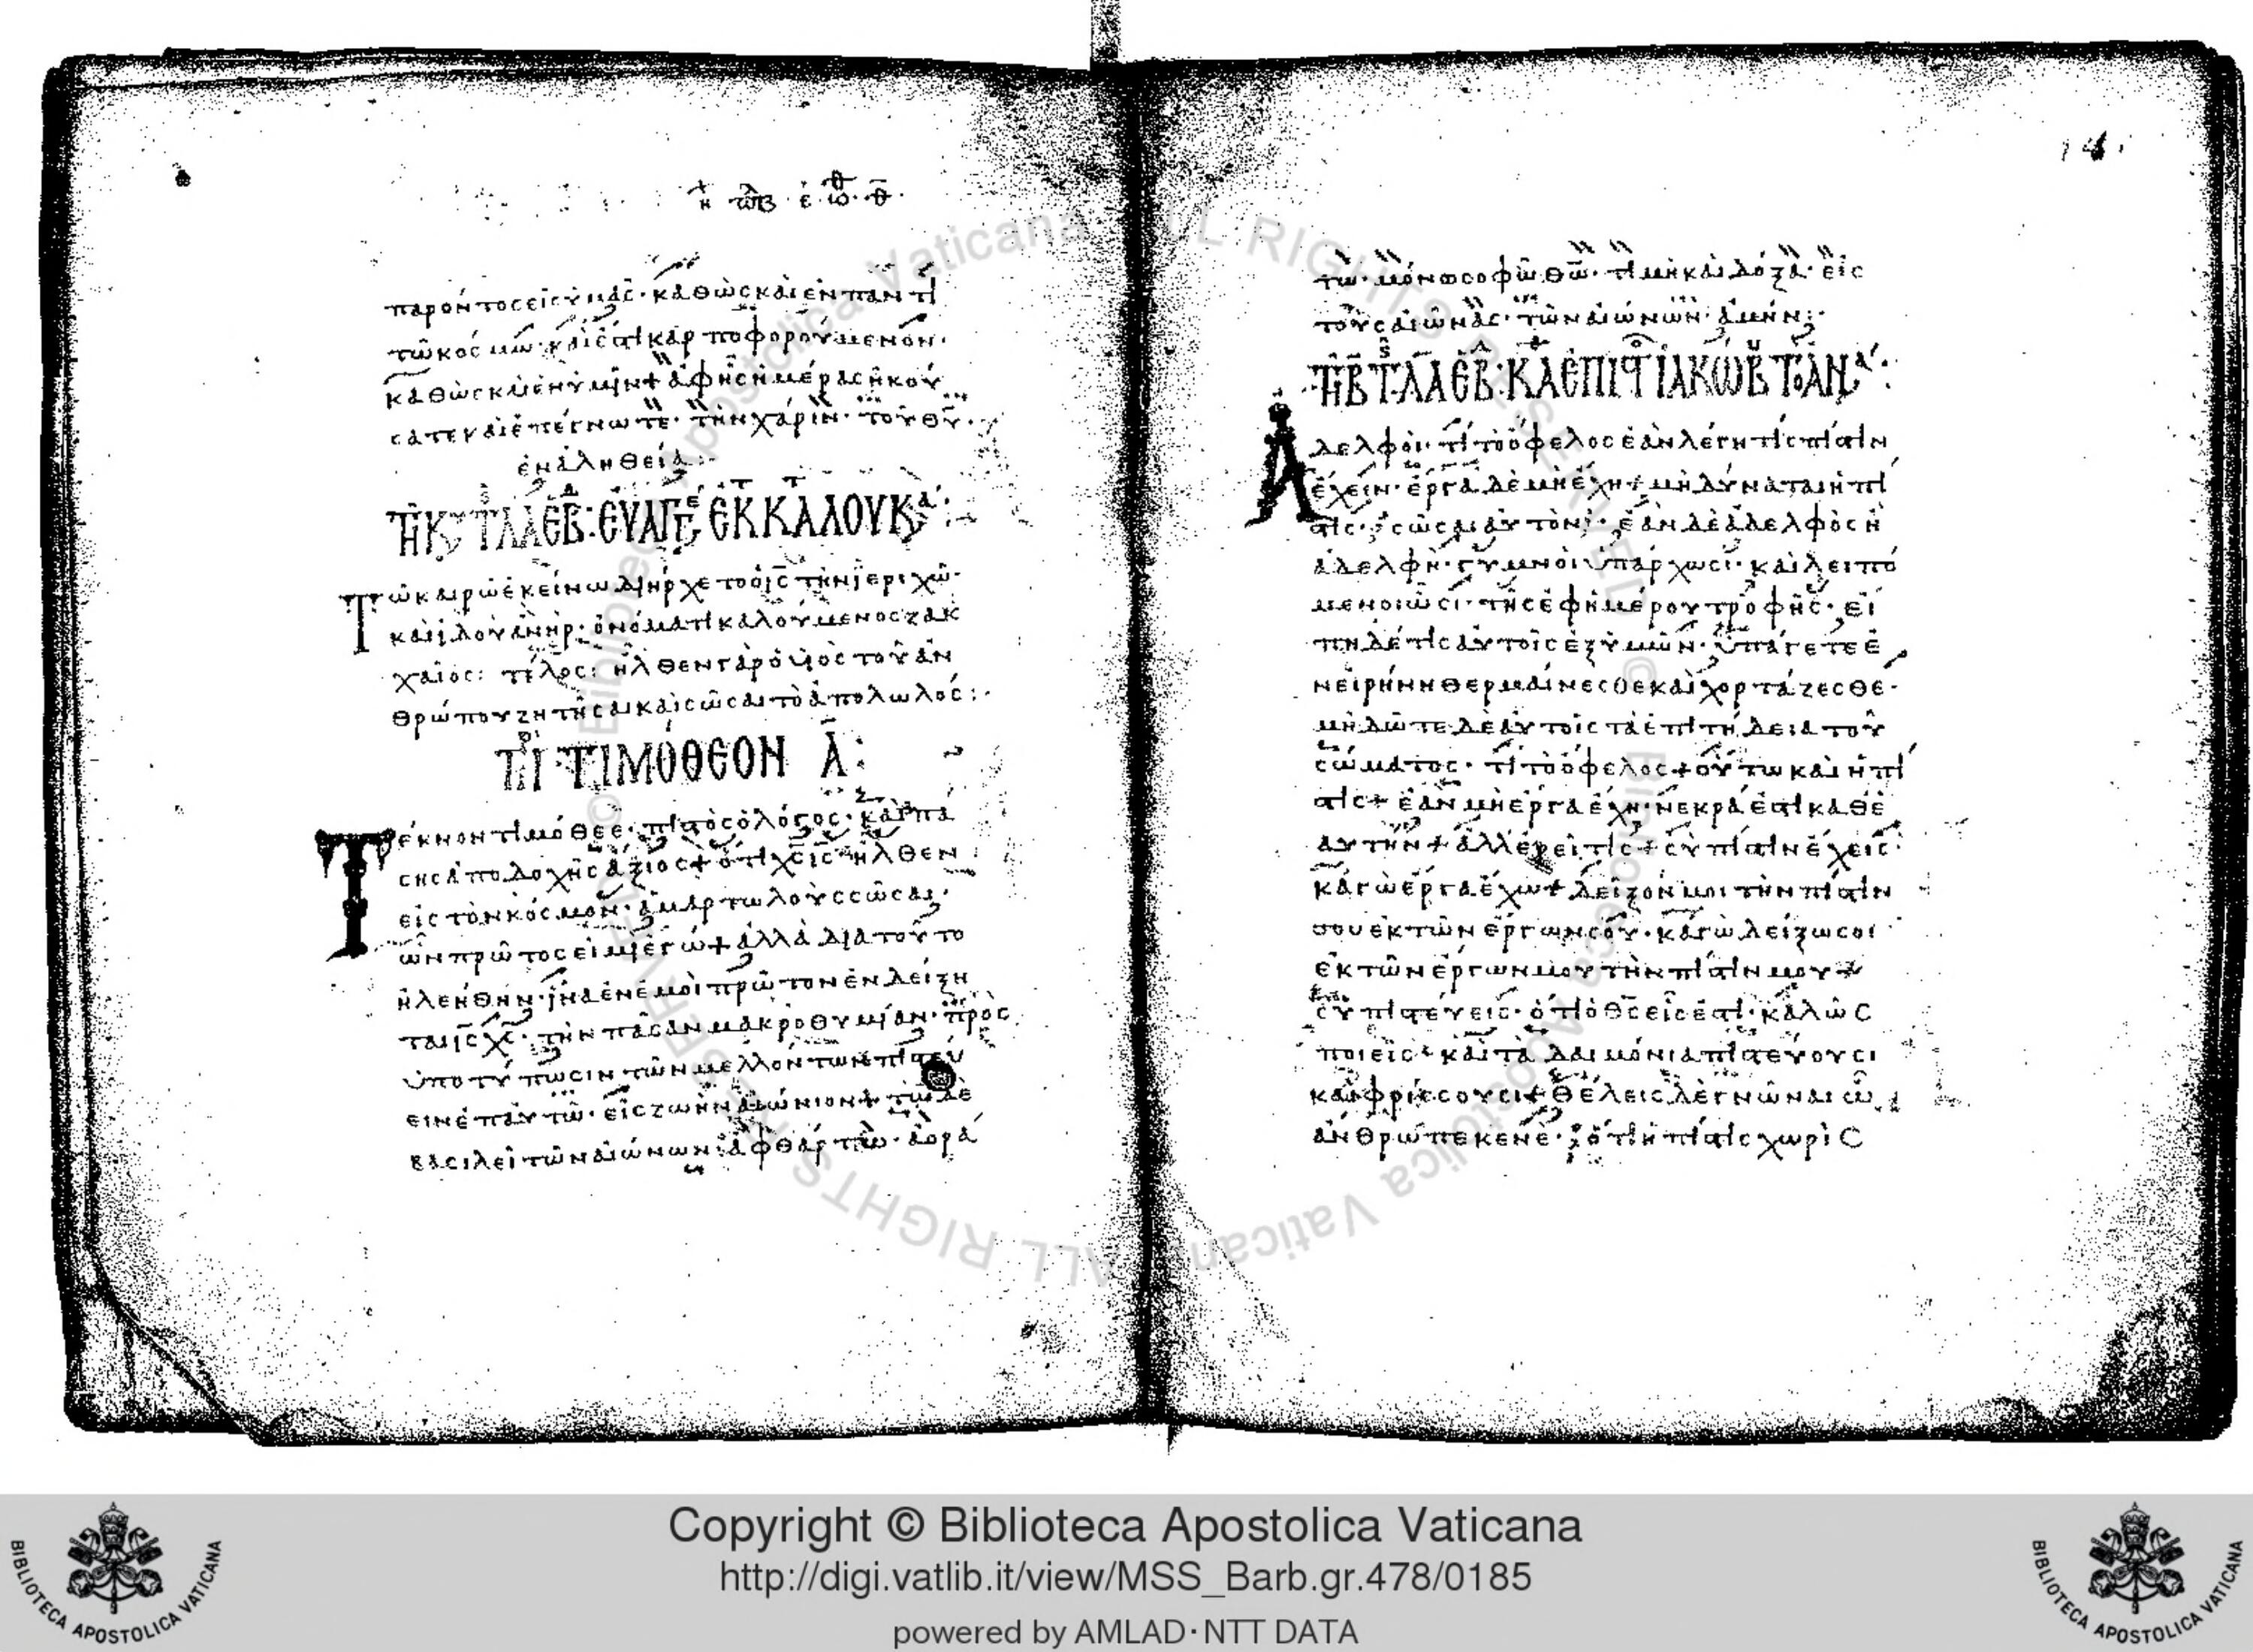 παρόντος εἰς ὑμᾶς· καθὼς καὶ ἐν παντὶ
τῶ κόσμω· καὶ ἐστὶ καρποφορούμενον·
καθὼς καὶ ἐν ὑμῖν + ἀφ ἧς ἡμέρας ἠκού
σατε καὶ ἐπέγνωτε· τὴν χάριν· τοῦ θυ·
ἐν ἀληθεία:
ΕΚ Κ ΛΟΥΚ
Τῶ καιρῶ ἐκείνω διήρχετο ὁ ις τὴν ἱεριχῶ·
καὶ ἰδοὺ ἀνὴρ· ὀνόματι καλούμενος ζακ
χαῖος: τέλος: ἦλθεν γὰρ ὁ υἱὸς τοῦ ἀν
θρώπου ζητῆσαι καὶ σῶσαι τὸ ἀπολωλός:
ΤΙΜΟΘΕΟΝ Α:
Τέκνον τιμόθεε· πιστὸς ὁ λόγος· καὶ πά
σης ἀποδοχῆς ἄξιος + ὅτι χς ις ἦλθεν
εἰς τὸν κόσμον· ἁμαρτωλοὺς σῶσαι·
ὧν πρῶτος εἰμὶ ἐγώ + ἀλλὰ διὰ τοῦτο
ἠλεήθην· ἵνα ἐν ἐμοὶ πρῶτον ἐνδείξη
ται ις χς· τὴν πᾶσαν μακροθυμίαν· πρὸς
ὑποτύπωσιν τῶν μελλόντων πιστεύ
ειν ἐπ αὐτῶ· εἰς ζωὴν αἰώνιον + τῶ δὲ
βασιλεῖ τῶν αἰώνων· ἀφθάρτω· ἀορά
τω· μόνω σοφῶ θω· τιμὴ καὶ δόξα· εἰς
τοὺς αἰῶνας· τῶν αἰώνων· ἀμήν:
ΕΠΙ ΙΑΚΩΒ
Ἀδελφοὶ· τί τὸ ὄφελος ἐὰν λέγη τίς πίστιν
ἔχειν· ἔργα δὲ μὴ ἔχη + μὴ δύναται ἡ πί
στις· σῶσαι αὐτὸν· ἐὰν δὲ ἀδελφὸς ἢ
ἀδελφὴ· γυμνοὶ ὑπάρχωσι· καὶ λειπό
μενοι ὦσι· τῆς ἐφημέρου τροφῆς· εἴ
πη δέ τις αὐτοῖς ἐξ ὑμῶν· ὑπάγετε ἐ
ν εἰρήνη θερμαίνεσθε καὶ χορτάζεσθε·
μὴ δῶτε δὲ αὐτοῖς τὰ ἐπιτήδεια τοῦ
σώματος· τί τὸ ὄφελος + οὕτω καὶ ἡ πί
στις + ἐὰν μὴ ἔργα ἔχη· νεκρά ἐστι καθ ἑ
αυτήν + ἀλλ ἐρεῖ τίς + σὺ πίστιν ἔχεις·
κἀγὼ ἔργα ἔχω + δεῖξον μοι τὴν πίστιν
σου ἐκ τῶν ἔργων σου· κἀγὼ δείξω σοι
ἐκ τῶν ἔργων μου τὴν πίστιν μου +
σὺ πιστεύεις· ὅτι ὁ θς εἷς ἐστί· καλῶς
ποιεῖς· καὶ τὰ δαιμόνια πιστεύουσι
καὶ φρίσσουσι + θέλεις δὲ γνῶναι ὦ
ἄνθρωπε κενέ· ὅτι ἡ πίστις χωρὶς
Copyright © Biblioteca Apostolica Vaticana
http://digi.vatlib.it/view/MSS_Barb.gr.478/0185
powered by AMLAD·NTT DATA
BIBLIOTECA APOSTOLICA VATICANA
BIBLIOTECA APOSTOLICA VATICANA